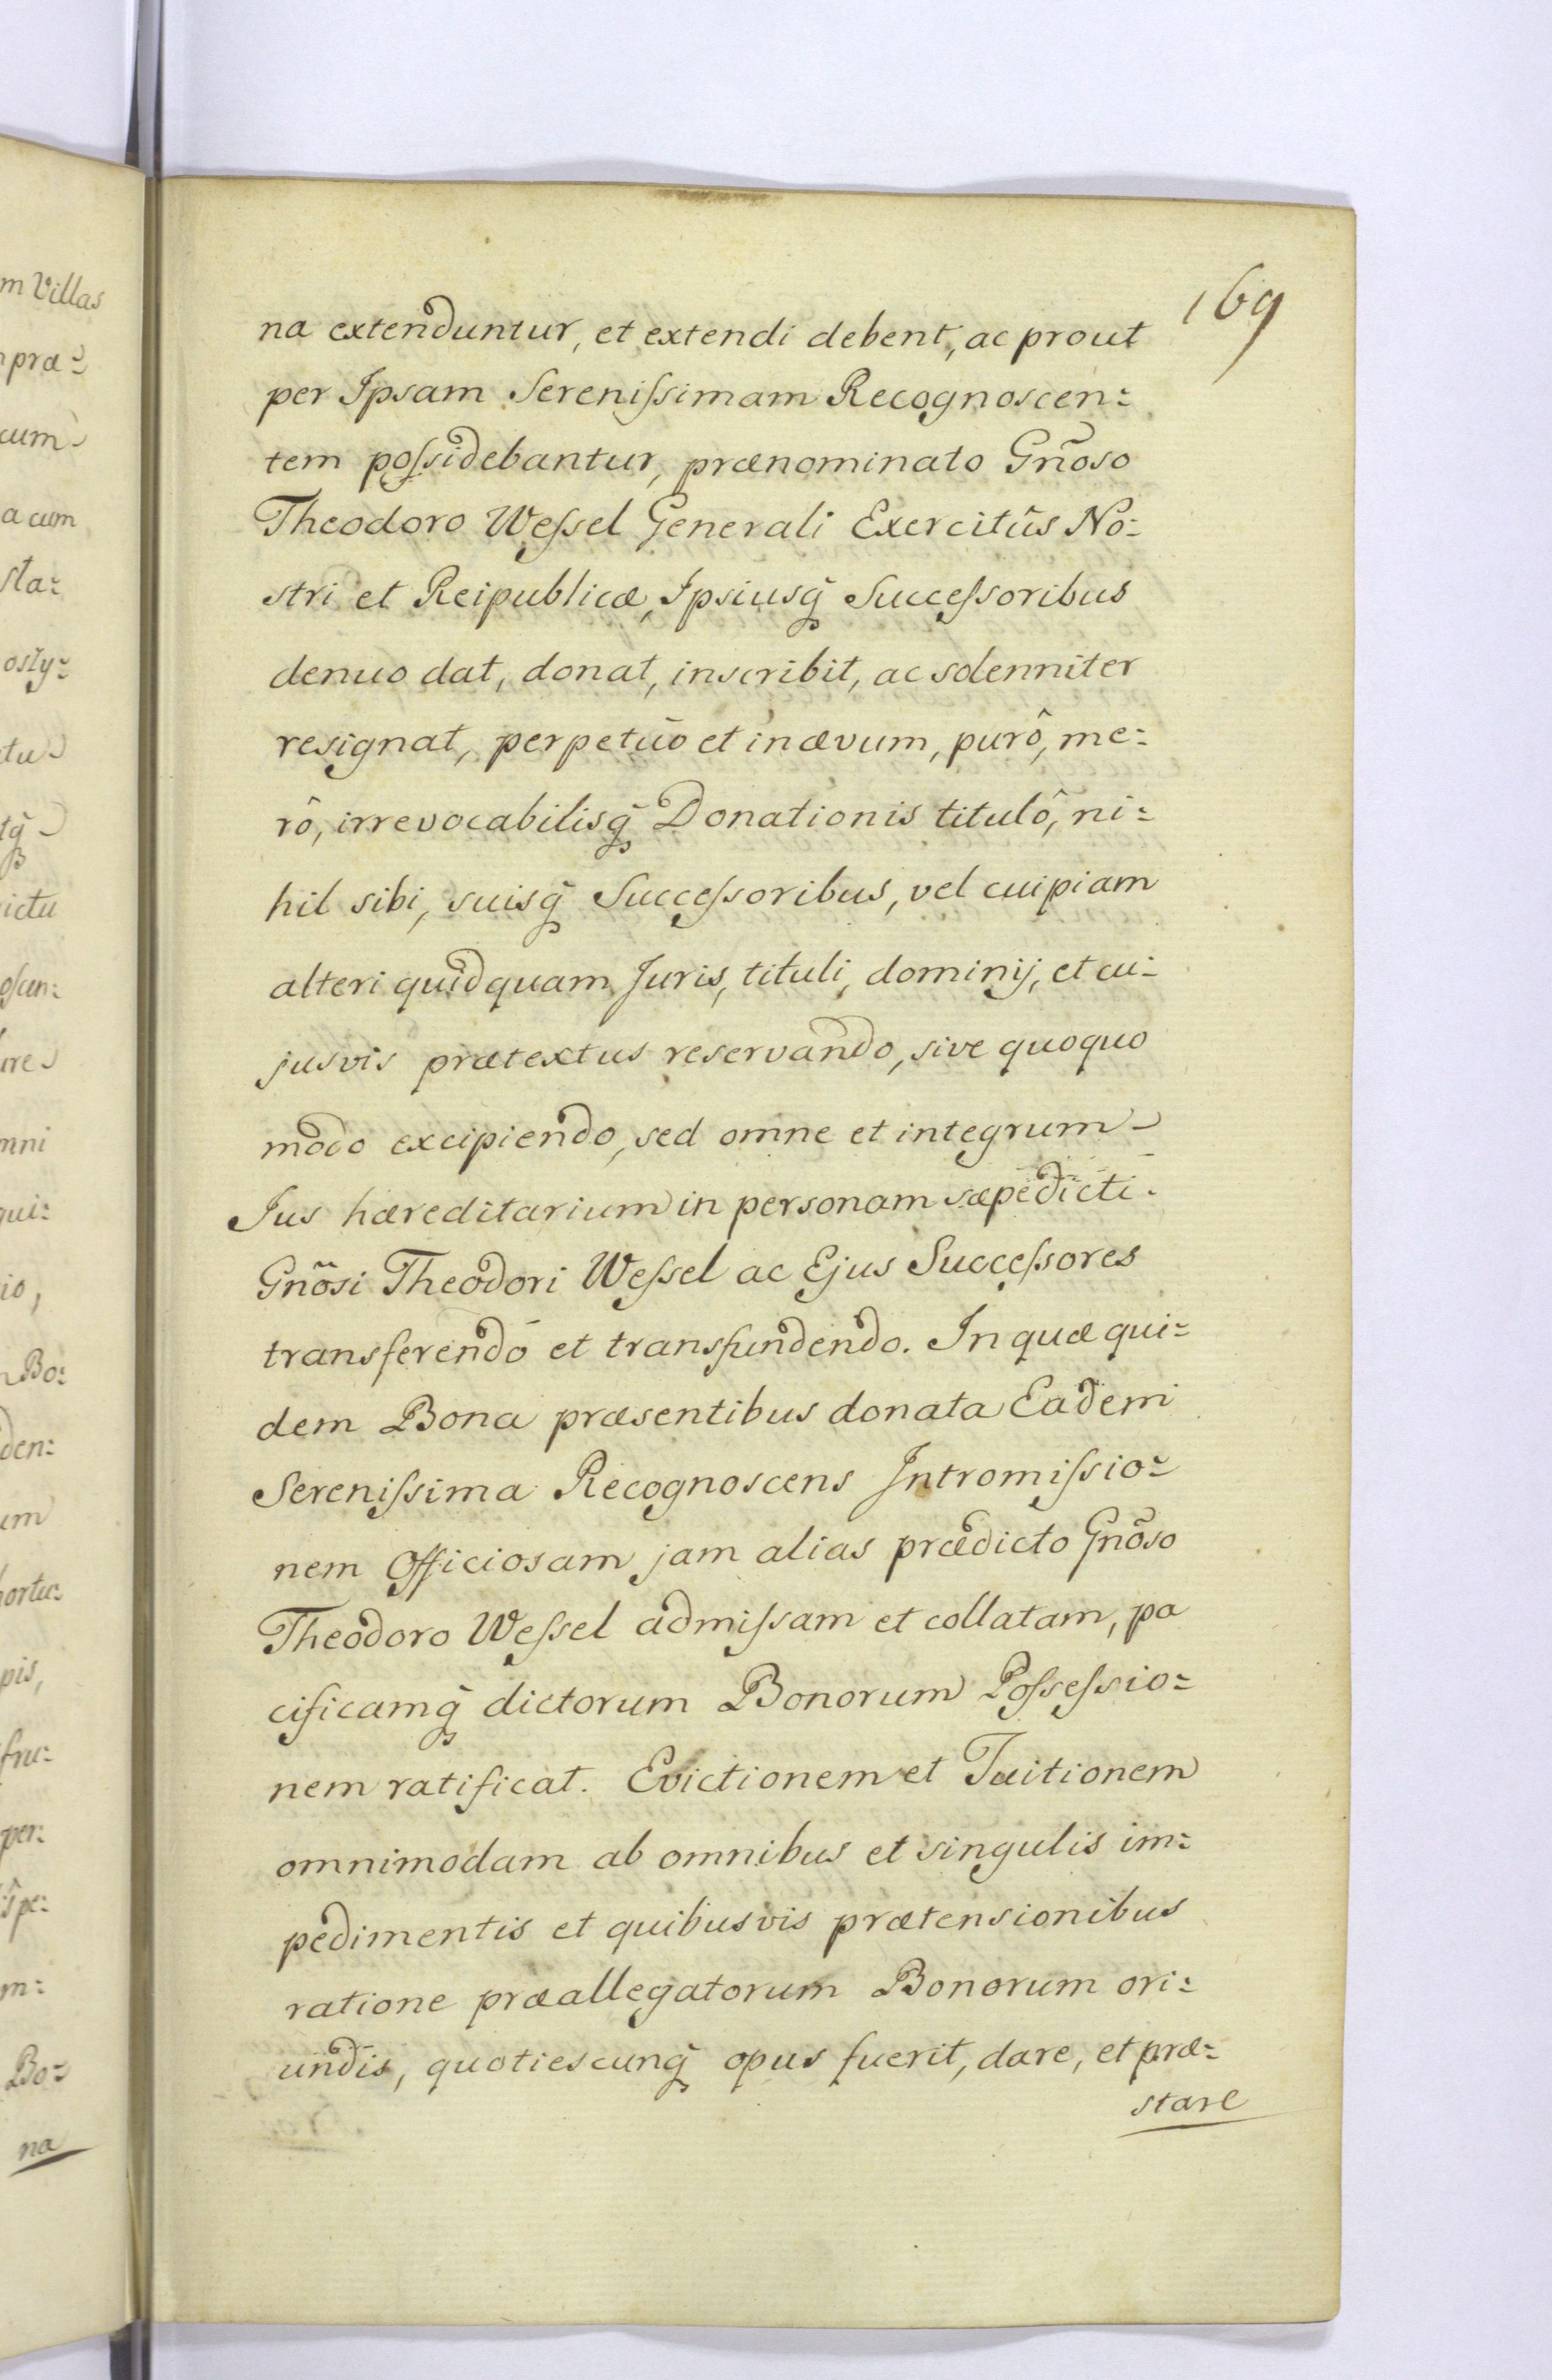 169
na extenduntur, et extendi debent, ac prout
per Ipsam Sereniſsimam Recognoscen=
tem poſsidebantur, prænominato Gñoso
Theodoro Weſsel Generali Exercitûs No=
stri et Reipublicæ, Ipsiusq̃ Succeſsoribus
denuo dat, donat, inscribit, ac solenniter
resignat, perpetuo et in ævum, purô, me=
rô, irrevocabilisq̃ Donationis titulô, ni=
hil sibi, suisq̃ Succeſsoribus, vel cuipiam
alteri quidquam Juris, tituli, dominij, et cu=
jusvis prætextus reservando, sive quoquo
modo excipiendo, sed omne et integrum
Jus hæreditarium in personam sæpedicti
Gñosi Theodori Weſsel ac Ejus Succeſsores
transferendo et transfundendo. In quæ qui=
dem Bona præsentibus donata Eadem
Sereniſsima Recognoscens Intromiſsio=
nem Officiosam jam alias prædicto Gñoso
Theodoro Weſsel admiſsam et collatam, pa
cificamq̃ dictorum Bonorum Poſseſsio=
nem ratificat. Evictionem et Tuitionem
omnimodam ab omnibus et singulis im=
pedimentis et quibusvis prætensionibus
ratione præallegatorum Bonorum ori=
undis, quotiescunq̃ opus fuerit, dare, et præ=
stare
m Villas
præ=
cum
a cum
sta=
osty=
tu
tq̃
ictu
osun=
ure
mni
qui=
io,
Bo=
den=
um
hortu=
pis,
fru=
per=
spe=
m=
Bo=
na